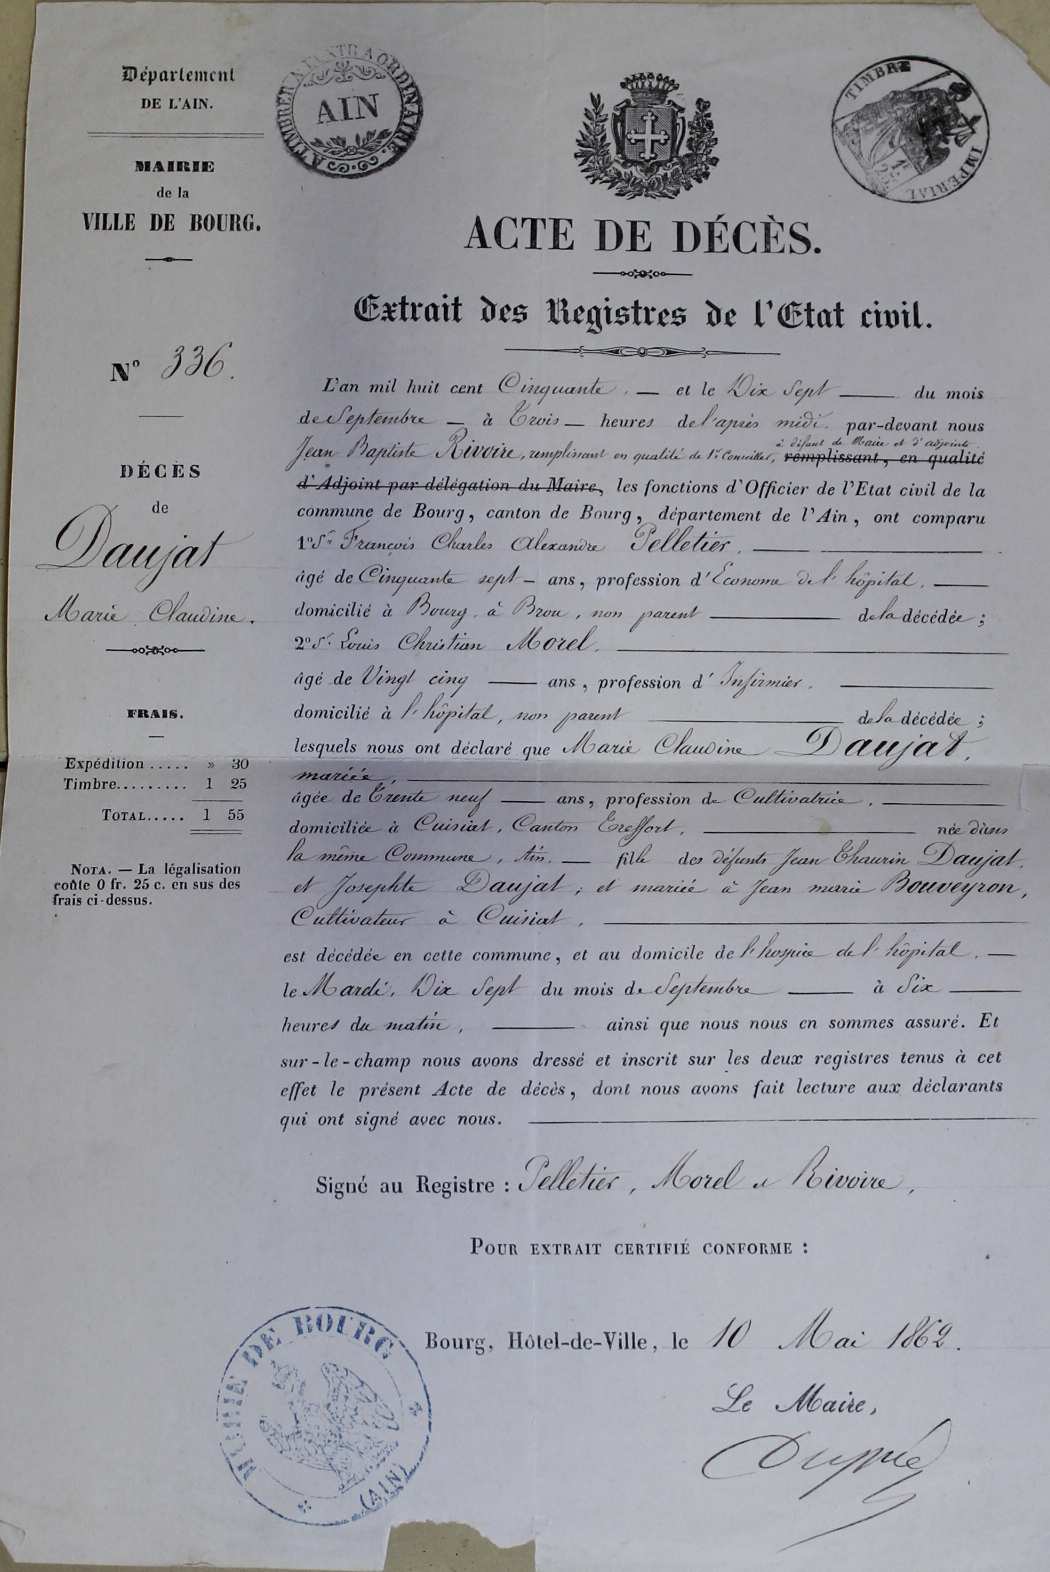 Département
DE L'AIN.
MAIRIE
de la
VILLE DE BOURG.
A TIMBRER A L'EXTRAORDINAIRE.
AIN
TIMBRE IMPÉRIAL
1F
25
ACTE DE DÉCÈS.
Extrait des Registres de l'Etat civil.
N° 336.
DÉCÈS
de
Daujat
Marie Claudine.
FRAIS.
Expédition ..... » 30
Timbre......... 1 25
TOTAL..... 1 55
NOTA. — La légalisation
coûte 0 fr. 25 c. en sus des
frais ci-dessus.
L'an mil huit cent Cinquante. — et le Dix Sept — du mois
de Septembre — à Trois — heures de l'après midi par-devant nous
à défaut de Maire et d'adjoints.
Jean Baptiste Rivoire, remplissant en qualité de 1er Conseiller, remplissant, en qualité
d'Adjoint par délégation du Maire, les fonctions d'Officier de l'Etat civil de la
commune de Bourg, canton de Bourg, département de l'Ain, ont comparu
1° Sr François Charles Alexandre Pelletier. —
âgé de Cinquante sept — ans, profession d'Econome de l'hôpital. —
domicilié à Bourg, à Brou, non parent — de la décédée;
2° Sr Louis Christian Morel. —
âgé de Vingt cinq — ans, profession d'Infirmier. —
domicilié à l'hôpital, non parent — de la décédée;
lesquels nous ont déclaré que Marie Claudine Daujat,
mariée, —
âgée de Trente neuf — ans, profession de Cultivatrice. —
domiciliée à Cuisiat, Canton Treffort, — née dans
la même Commune, Ain. — fille des défunts Jean Thaurin Daujat.
et Josephte Daujat; et mariée à Jean marie Bouveyron,
Cultivateur à Cuisiat. —
est décédée en cette commune, et au domicile de l'hospice de l'hôpital. —
le Mardi, Dix Sept du mois de Septembre — à Six —
heures du matin, — ainsi que nous nous en sommes assuré. Et
sur-le-champ nous avons dressé et inscrit sur les deux registres tenus à cet
effet le présent Acte de décès, dont nous avons fait lecture aux déclarants
qui ont signé avec nous. —
Signé au Registre : Pelletier, Morel et Rivoire.
POUR EXTRAIT CERTIFIÉ CONFORME :
Bourg, Hôtel-de-Ville, le 10 Mai 1862.
Le Maire,
MAIRIE DE BOURG
(AIN)